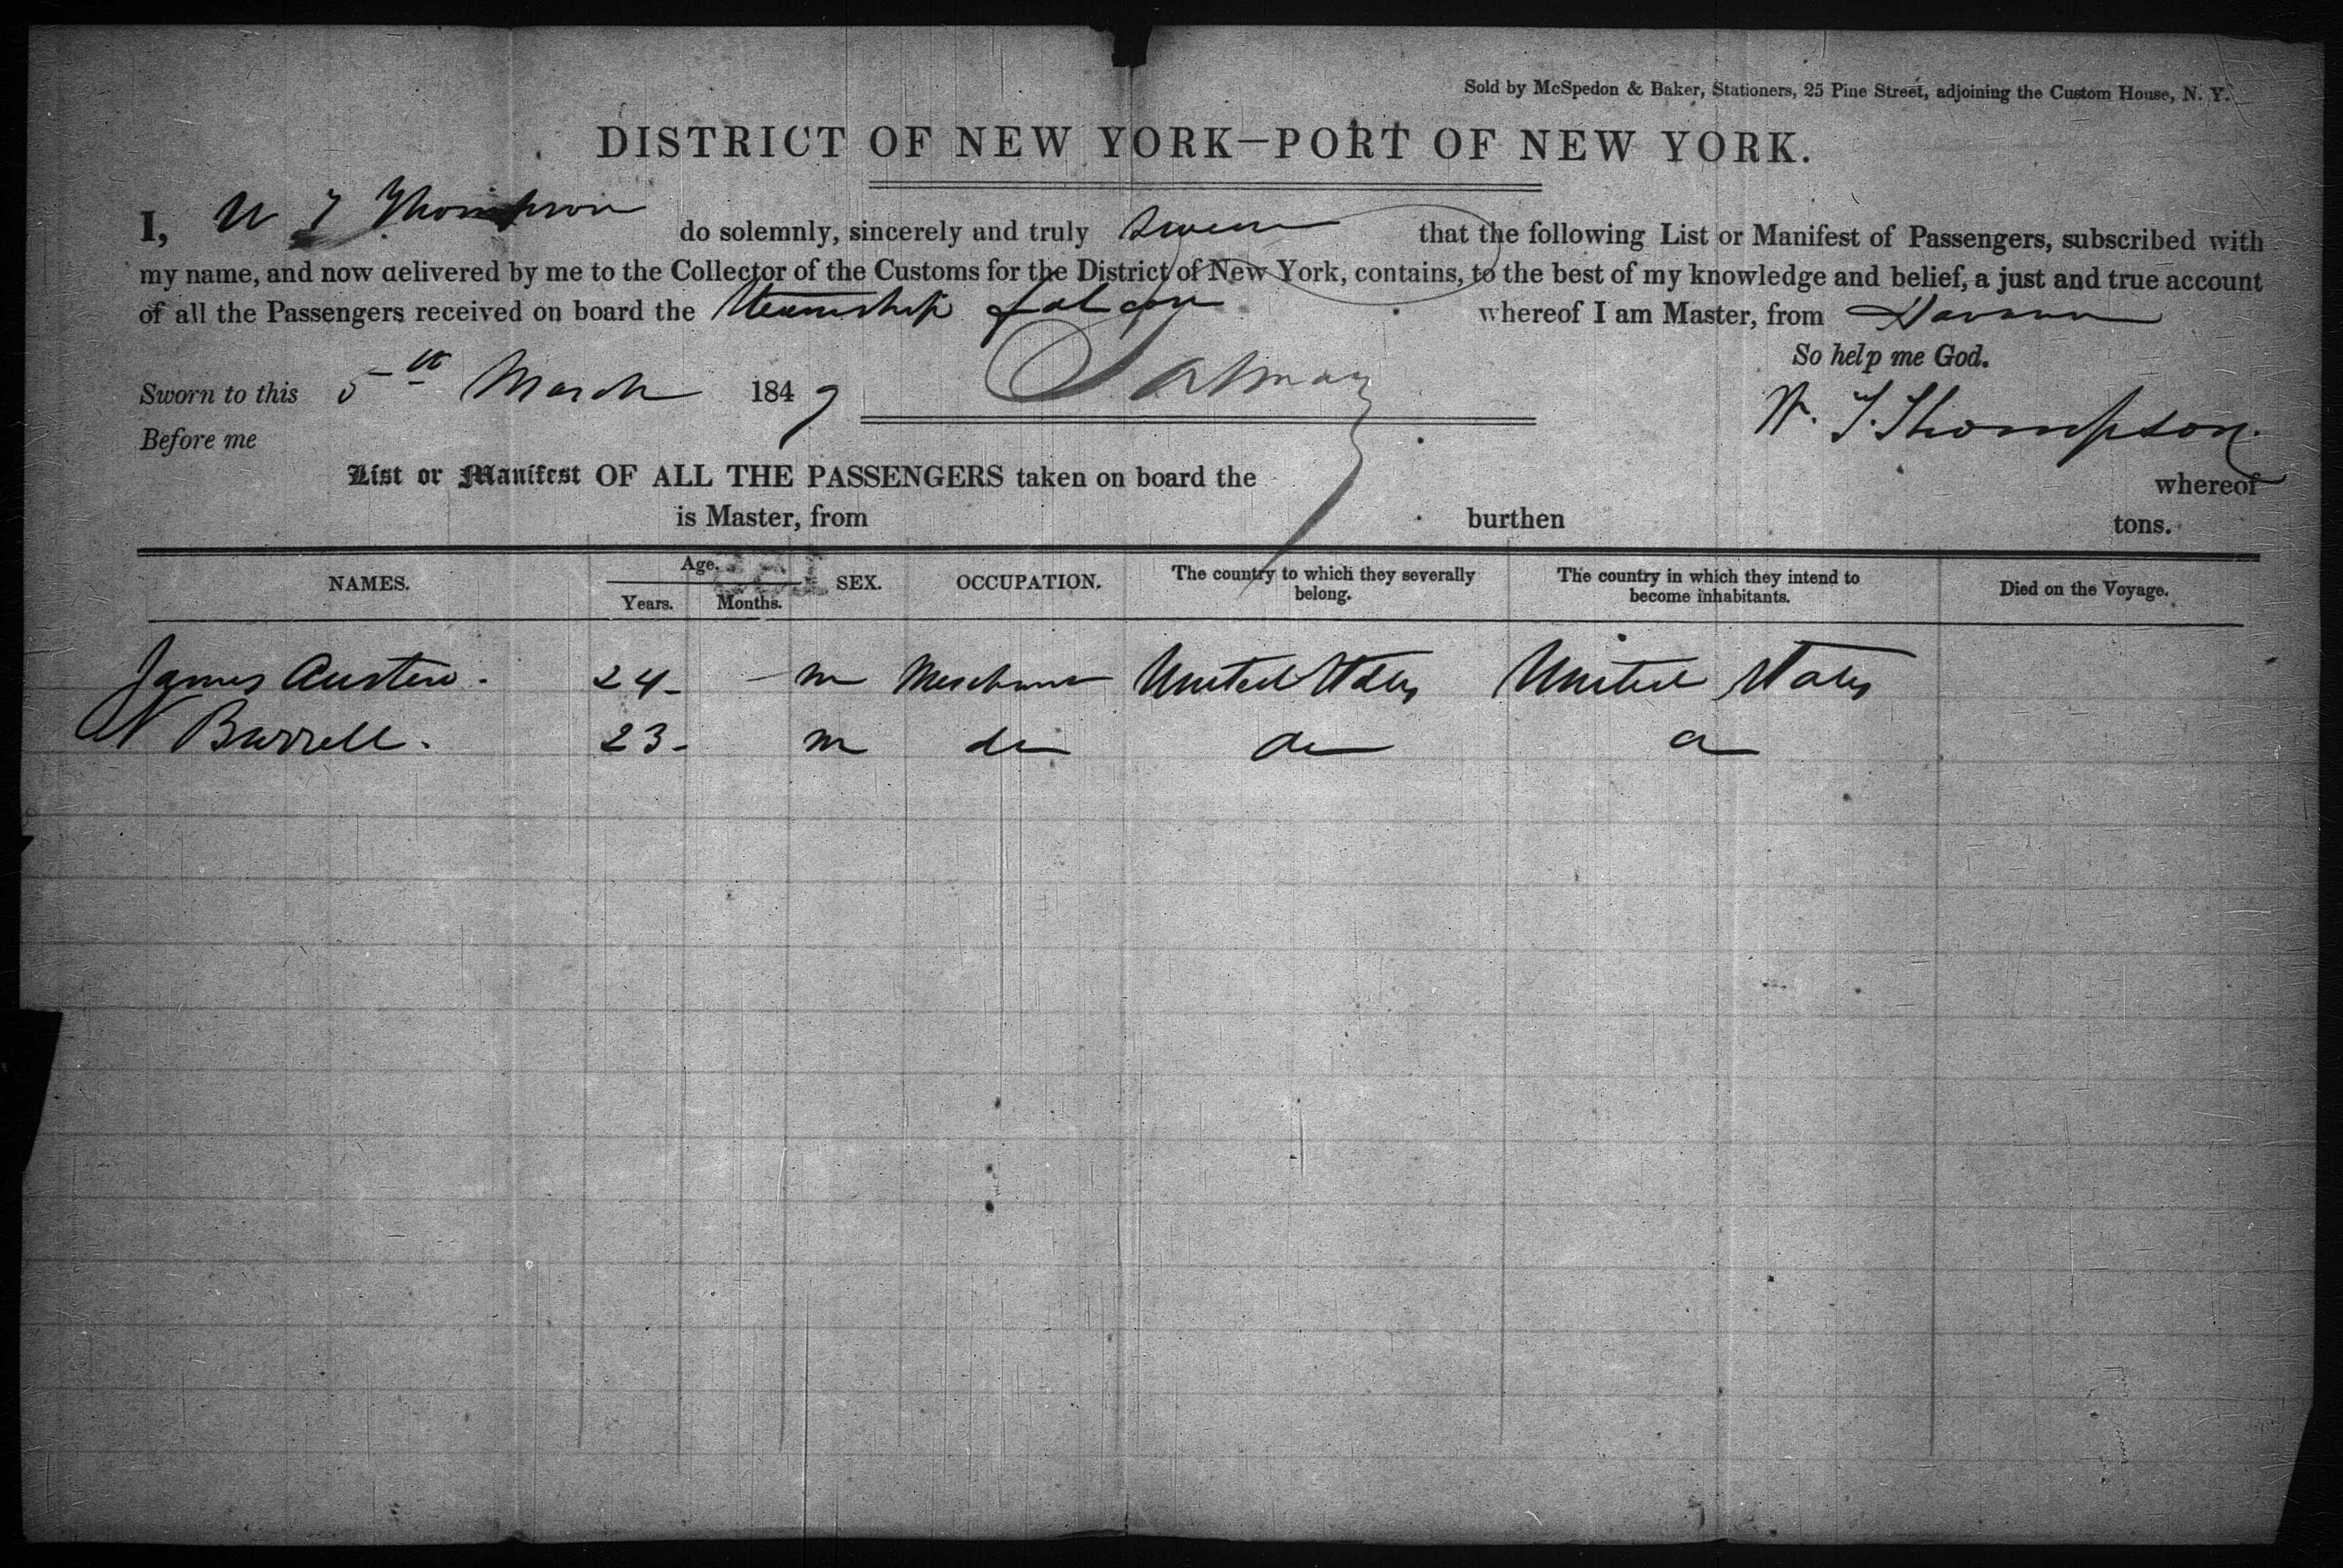 Sold by McSpedon & Baker, Stationers, 25 Pine Street, adjoining the Custom House, N. Y.
DISTRICT OF NEW YORK—PORT OF NEW YORK.
I, W T Thompson do solemnly, sincerely and truly swear that the following List or Manifest of Passengers, subscribed with
my name, and now delivered by me to the Collector of the Customs for the District of New York, contains, to the best of my knowledge and belief, a just and true account
of all the Passengers received on board the Steamship Falcon whereof I am Master, from Havana
So help me God.
Sworn to this 5th March 1849
W. T. Thompson.
Before me
List or Manifest OF ALL THE PASSENGERS taken on board the whereof
is Master, from burthen tons.
NAMES. Age. Years. Months. SEX. OCCUPATION. The country to which they severally belong. The country in which they intend to become inhabitants. Died on the Voyage.
James Austen. 24 - m Merchant United States United States
N Burrell. 23 - m do do do